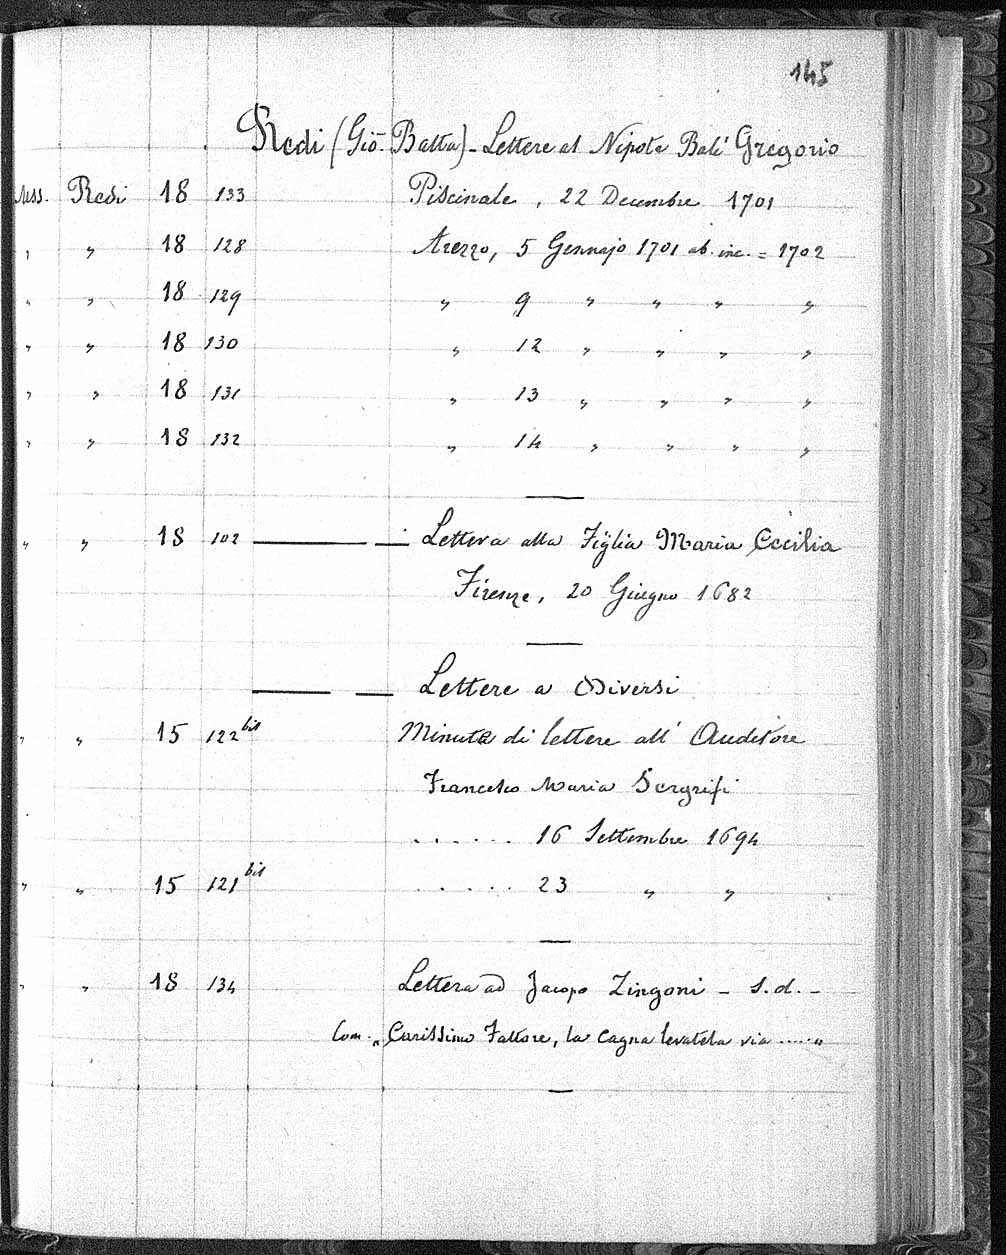 145
Redi (Gio. Batta) - Lettere al Nipote Balì Gregorio
Mss. Redi 18 133 Piscinale, 22 Decembre 1701
" " 18 128 Arezzo, 5 Gennajo 1701 ab. inc. = 1702
" " 18 129 " 9 " " " "
" " 18 130 " 12 " " " "
" " 18 131 " 13 " " " "
" " 18 132 " 14 " " " "
" " 18 102 Lettera alla Figlia Maria Cecilia
Firenze, 20 Giugno 1682
Lettere a Diversi
" " 15 122 bis Minuta di lettere all' Auditore
Francesco Maria Sergrifi
. . . . . . 16 Settembre 1694
" " 15 121 bis . . . . . . 23 " "
" " 18 134 Lettera ad Jacopo Zingoni - s.d. -
Com. „ Carissimo Fattore, la cagna levatela via ..... „